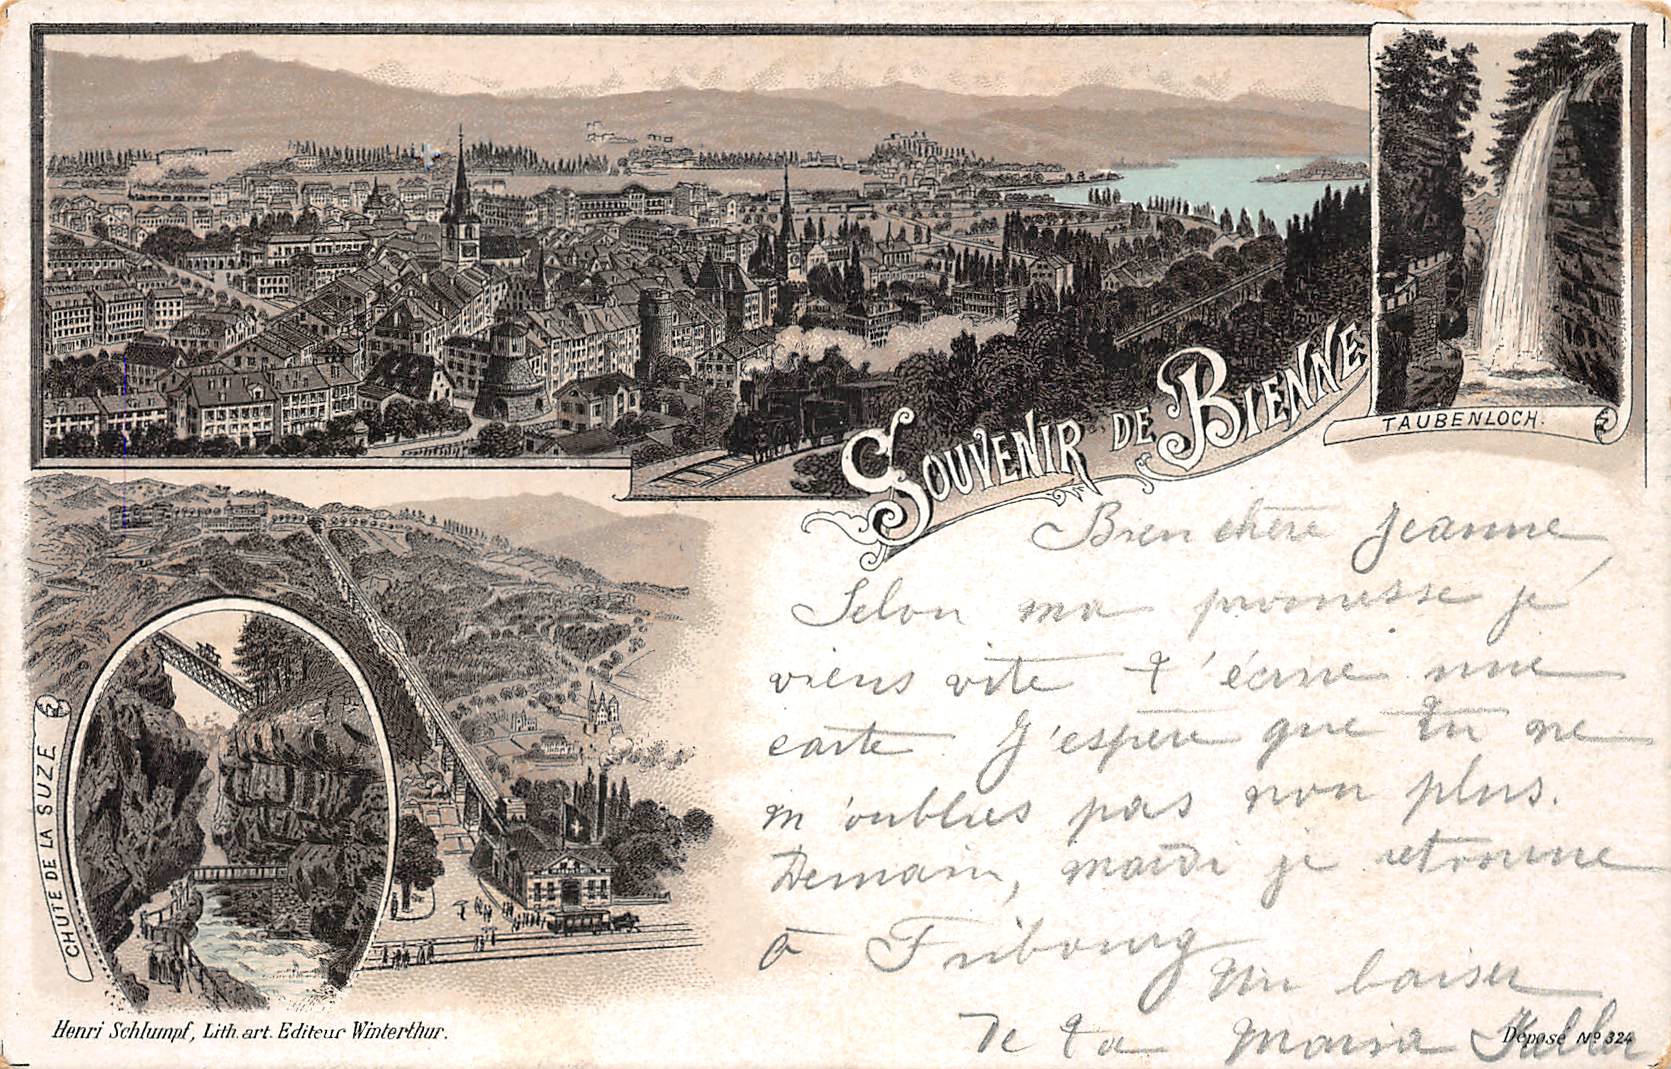 TAUBENLOCH.
SOUVENIR DE BIENNE
CHUTE DE LA SUZE
Bien chère Jeanne,
Selon ma promesse je
viens vite t'écrire une
carte. J'espère que tu ne
m'oublies pas non plus.
Demain, mardi je retourne
à Fribourg
Un baiser
de ta Maria
Henri Schlumpf, Lith. art. Editeur Winterthur.
Déposé No 324